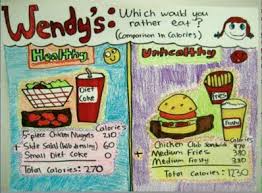 Wendy's: Which would you
rather eat?
(Comparison in Calories)
Healthy
Diet
Coke
Calories
5-piece Chicken Nuggets 210
+ Side Salad (w/o dressing) 60
Small Diet Coke 0
Total Calories: 270
Unhealthy
Calories
Chicken Club Sandwich
+ Medium Fries 380
+ Medium Frosty
Total Calories: 1230